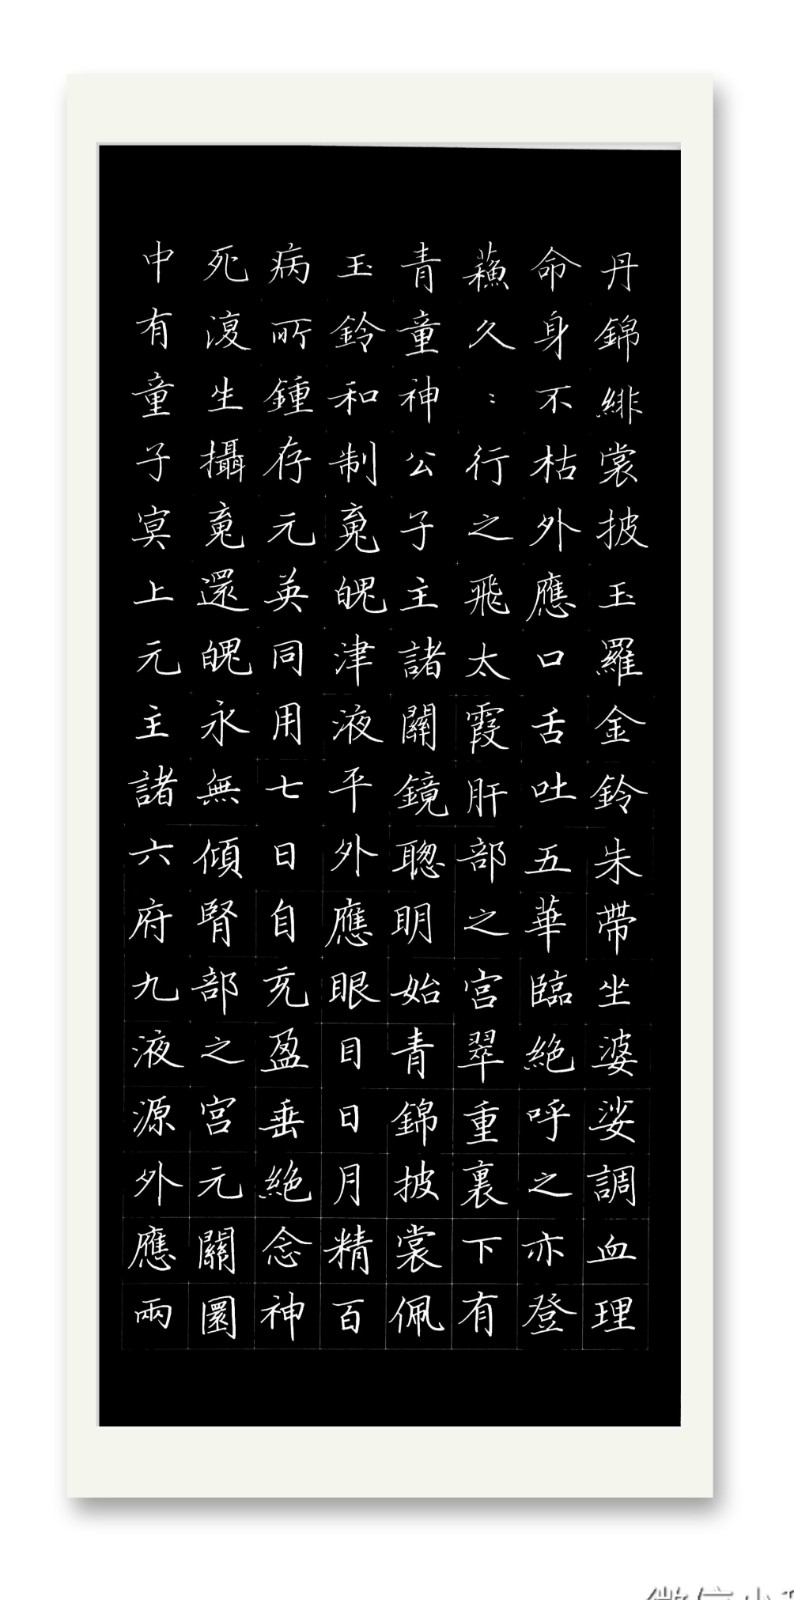 丹錦緋裳披玉羅金鈴朱帶坐婆娑調血理
命身不枯外應口舌吐五華臨絕呼之亦登
蘓久〻行之飛太霞肝部之宮翠重裏下有
青童神公子主諸關鏡聰明始青錦披裳佩
玉鈴和制䰟魄津液平外應眼目日月精百
病所鍾存元英同用七日自充盈垂絕念神
死復生攝䰟還魄永無傾腎部之宮元關圜
中有童子冥上元主諸六府九液源外應兩